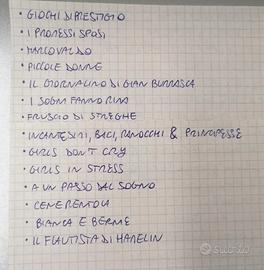 • GIOCHI DI PRESTIGIO
• I PROMESSI SPOSI
• MARCOVALDO
• PICCOLE DONNE
• IL GIORNALINO DI GIAN BURRASCA
• I SOGNI FANNO RIMA
• FRUSCIO DI STREGHE
• INCANTESIMI, BACI, RANOCCHI & PRINCIPESSE
• GIRLS DON'T CRY
• GIRLS IN STRESS
• A UN PASSO DAL SOGNO
• CENERENTOLA
• BIANCA E BERNIE
• IL FLAUTISTA DI HAMELIN
subito